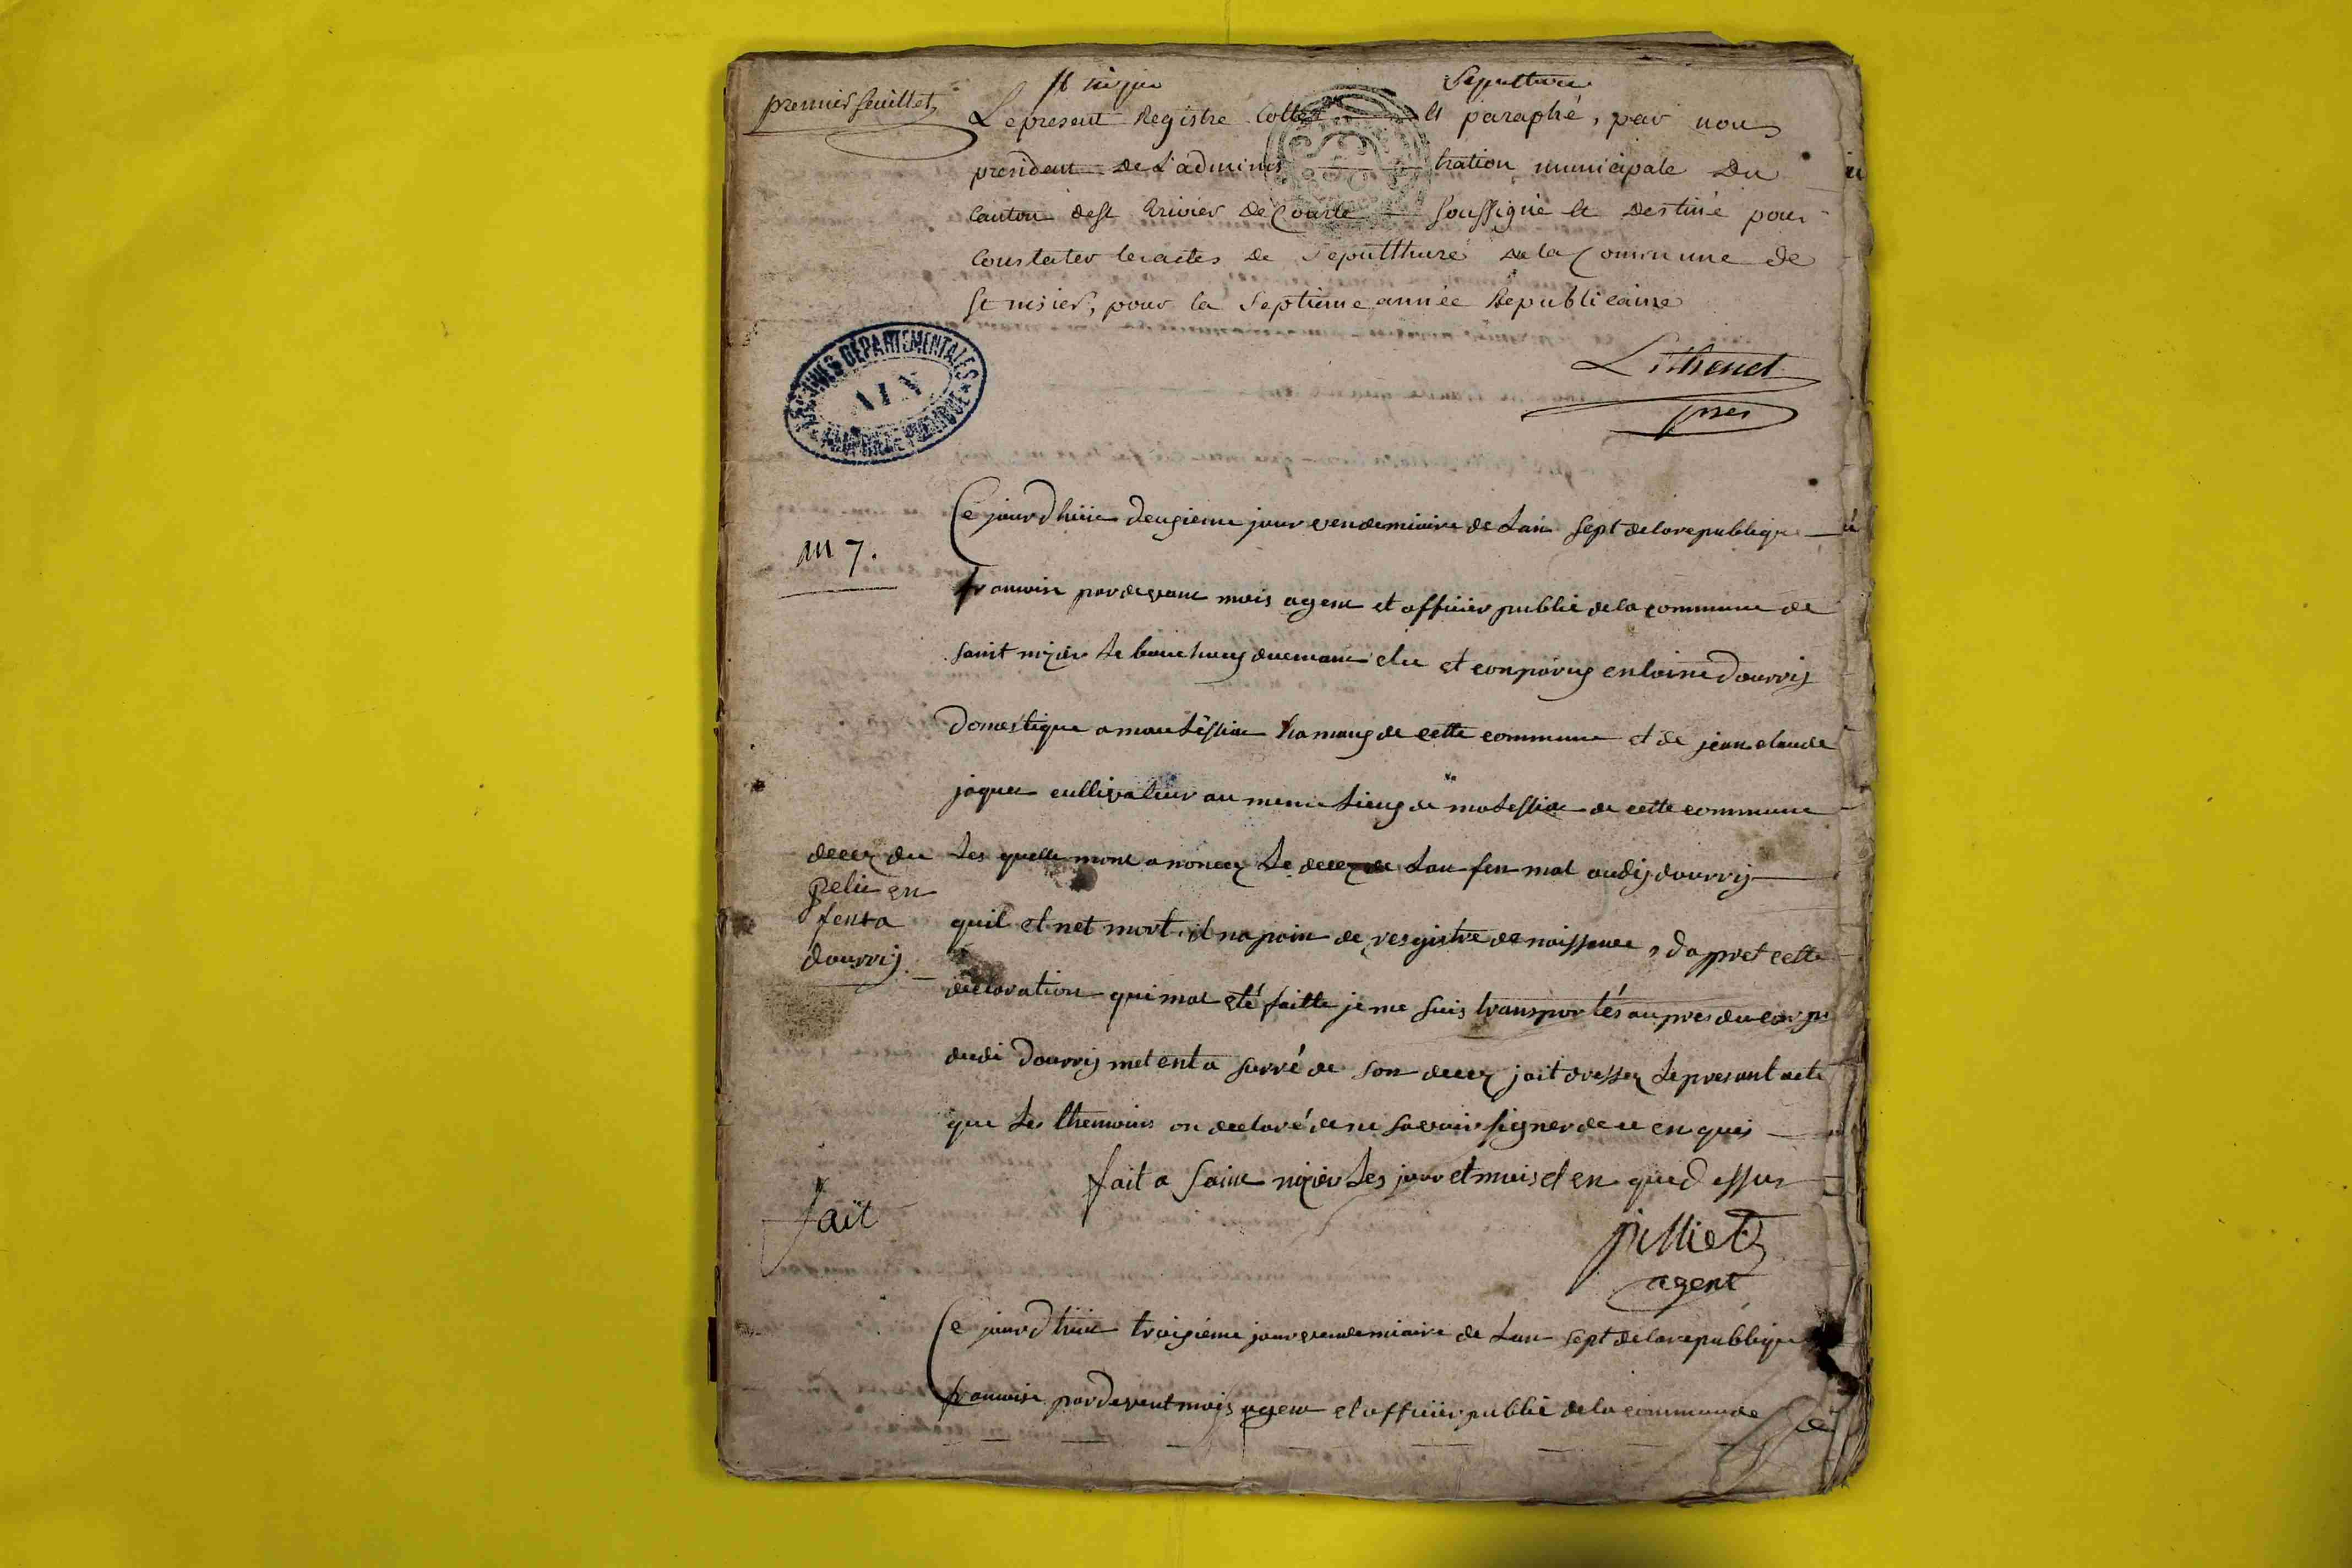 premier feuillet
St nizier
Sepulture
Le present Registre Cotté et paraphé, par nous
président de L'adminis tration municipale Du
Canton de St trivier De Courte soussigné et Destiné pour
Constater les actes de Sepultture de la Commune de
St nisier, pour la Septieme année Republicaine
Lithenet
pres
ARCHIVES DÉPARTEMENTALES
AIN
Ce jourdhuie deuzieme jour vendemiaire de Lan sept de la republique
an 7.
francoise par devant mois agent et officier public de la commune de
saint nizier Le bouchoux duemant elu et comparus entoine Dourrij
Domestique a La maus de cette commune et de jean claude
cultivateur au meme Lieug de de cette commune
decez du Les quelle mont anoncez Le decez de Lan fen mal oudij dourrij
Pelie en
fent a
dourrij
quil et net mort, il na poin de resgistre de naissance, dappret cette
declaration qui mat eté faitte je me suis transportés aupres du corps
dudi Dourrij met ent a surré de son decez jait dressez Le presant acte
que Les themoins on declaré de ne savoir signer de ce en quis
fait a Saint nizier Les jour et mois et en que dessus
fait
pilliet
agent
Ce jourdhuie troizieme jour vendemiaire de Lan sept de la republique
francoise par devent mois agent et officier public de la commune de
de